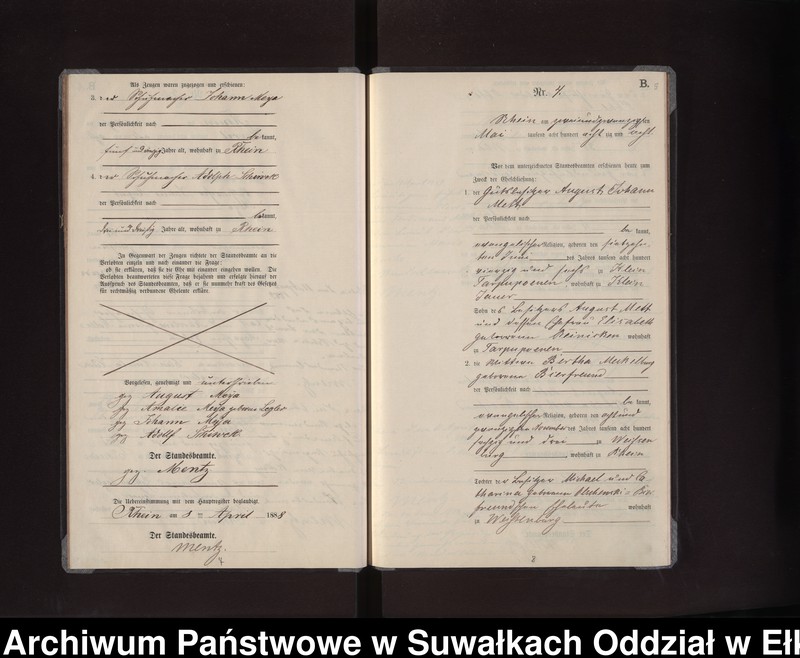 Als Zeugen waren zugezogen und erschienen:
3. der Schuhmacher Johann Meya
der Persönlichkeit nach
be kannt,
fünf und Jahre alt, wohnhaft zu Rhein
4. der Schuhmacher Adolph Schiwek
der Persönlichkeit nach
bekannt,
drei und dreißig Jahre alt, wohnhaft zu Rhein
In Gegenwart der Zeugen richtete der Standesbeamte an die
Verlobten einzeln und nach einander die Frage:
ob sie erklären, daß sie die Ehe mit einander eingehen wollen. Die
Verlobten beantworteten diese Frage bejahend und erfolgte hierauf der
Ausspruch des Standesbeamten, daß er sie nunmehr kraft des Gesetzes
für rechtmäßig verbundene Eheleute erkläre.
Vorgelesen, genehmigt und unterschrieben
gez August Meya
gez Amalie Meya geborene
gez Johann Meya
gez Adolf Schiwek
Der Standesbeamte.
gez. Mentz
Die Uebereinstimmung mit dem Hauptregister beglaubigt.
Rhein am 8 ten April 1888
Der Standesbeamte.
Mentz.
4
B.
Nr. 7.
Rhein am zweiundzwanzigsten
Mai tausend acht hundert achtzig und acht
Vor dem unterzeichneten Standesbeamten erschienen heute zum
Zweck der Eheschließung:
1. der Gutsbesitzer August Johann
Mett
der Persönlichkeit nach
be kannt,
evangelischer Religion, geboren den
ten Juni des Jahres tausend acht hundert
vierzig und sechs zu Klein
Tarpupoenen, wohnhaft zu Klein
Jauer
Sohn des Besitzers August Mett
und dessen Ehefrau Elisabeth
geborenen wohnhaft
zu Tarpupoenen
2. die Wittwe Bertha Meckelburg
geborene Bierfreund
der Persönlichkeit nach
be kannt,
evangelischer Religion, geboren den acht und
zwanzigsten November des Jahres tausend acht hundert
sechzig und drei zu Weissen
burg, wohnhaft zu Rhein
Tochter der Besitzer Michael und Ca
tharina geborene Bier
freundschen Eheleute wohnhaft
zu Weissenburg
8
Archiwum Państwowe w Suwałkach Oddział w Ełk